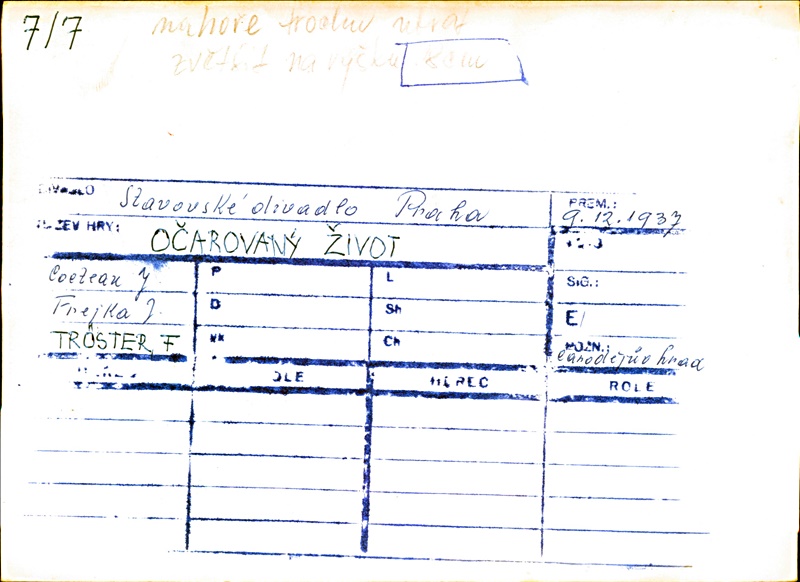 7/7
nahoře trochu ubrat
zvětšit na výšku 8cm
DIVADLO Stavovské divadlo Praha PREM.: 9.12.1937
NÁZEV HRY: OČAROVANÝ ŽIVOT
Cocteau J P L SIG.:
Frejka J. D Sh E/
TRÖSTER, F Vk Ch POZN.: čarodějův hrad
ROLE HEREC ROLE